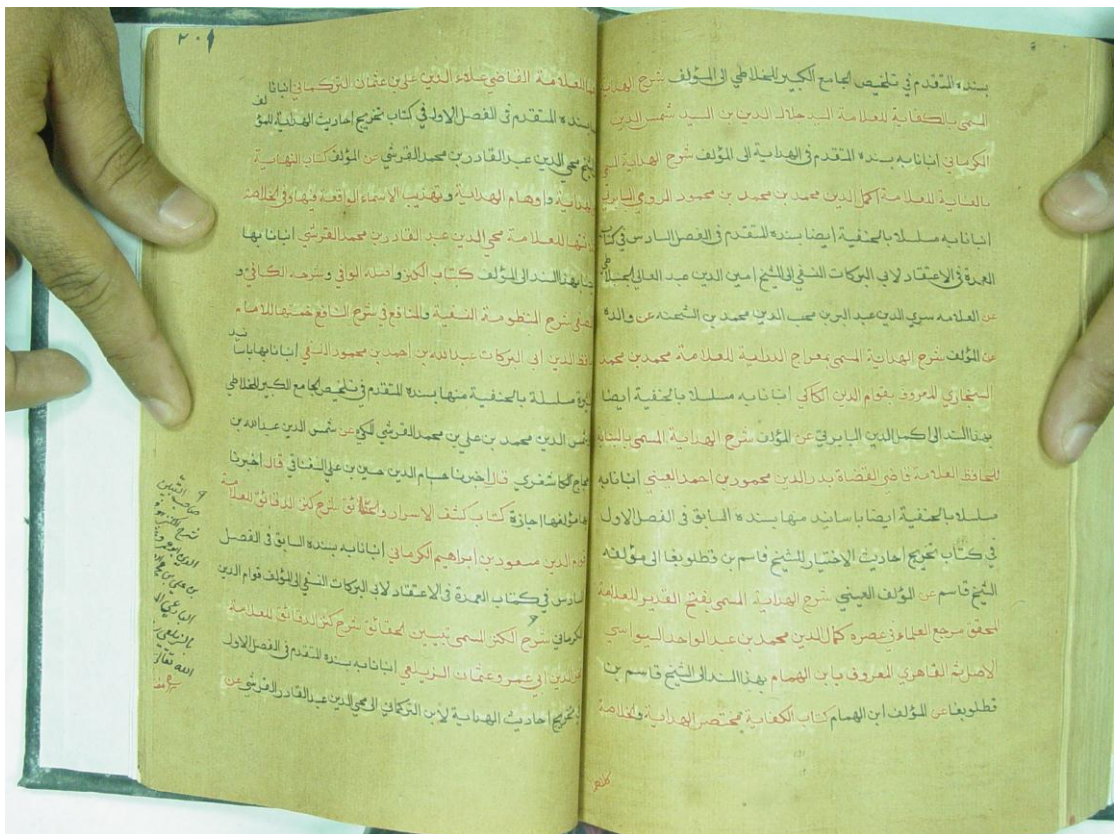 بسنده المتقدم في تلخيص الجامع الكبير للخلاطي الى المؤلف شرح الهداية
المسمى بالكفاية للعلامة السيد جلال الدين بن السيد شمس الدين
الكرماني انبانا به بسنده المتقدم في الهداية الى المؤلف شرح الهداية المسمى
بالعناية للعلامة اكمل الدين محمد بن محمد بن محمود الرومي البابرتي
انبانا به مسلسلا بالحنفية ايضا بسنده المتقدم في الفصل السادس في كتاب
العمدة في الاعتقاد لابي البركات النسفي الى الشيخ امين الدين عبد العالي
عن العلامه سري الدين عبد البر بن محب الدين محمد بن الشحنه عن والده
عن المؤلف شرح الهداية المسمى بمعراج الدراية للعلامة محمد بن محمد
السنجاري المعروف بقوام الدين الكاكي انبانا به مسلسلا بالحنفية ايضا
بهذا السند الى اكمل الدين البابرتي عن المؤلف شرح الهداية المسمى بالبناية
للحافظ العلامة قاضي القضاة بدر الدين محمود بن احمد العيني انبانا به
مسلسلا بالحنفية ايضا باسانيد منها بسنده السابق في الفصل الاول
في كتاب تخريج احاديث الاختيار للشيخ قاسم بن قطلوبغا الى مؤلفه
الشيخ قاسم عن المؤلف العيني شرح الهداية المسمى بفتح القدير للعلامة
المحقق مرجع العلماء في عصره كمال الدين محمد بن عبد الواحد السيواسي
الاصل ثم القاهري المعروف بابن الهمام بهذا السند الى الشيخ قاسم بن
قطلوبغا عن المؤلف ابن الهمام كتاب الكفاية مختصر الهداية والخلاصة
٢٠١
للعلامة القاضي علاء الدين علي بن عثمان التركماني انبانا
بسنده المتقدم في الفصل الاول في كتاب تخريج احاديث الهداية للمؤلف
الشيخ محي الدين عبد القادر بن محمد القرشي عن المؤلف كتاب النهاية
الهداية واوهام الهداية وتهذيب الاسماء الواقعة فيها وفي الخلاصة
للعلامة محي الدين عبد القادر بن محمد القرشي انبانا بها
بهذا السند الى المؤلف كتاب الكنز واصله الوافي وشرحه الكافي و
المصفى شرح المنظومة النسفية والمنافع في شرح النافع خمستها للامام
حافظ الدين ابي البركات عبد الله بن احمد بن محمود النسفي انبانا بها باسانيد
كثيرة مسلسلة بالحنفية منها بسنده المتقدم في تلخيص الجامع الكبير للخلاطي
شمس الدين محمد بن علي بن محمد القرشي المكي عن شمس الدين عبد الله بن
حجاج الكاشغري قال اخبرنا حسام الدين حسين بن علي السغناقي قال اخبرنا
بها مؤلفها اجازة كتاب كشف الاسرار والحقائق شرح كنز الدقائق للعلامة
قوام الدين مسعود بن ابراهيم الكرماني انبانا به بسنده السابق في الفصل
السادس في كتاب العمدة في الاعتقاد لابي البركات النسفي الى المؤلف قوام الدين
الكرماني شرح الكنز المسمى تبيين الحقائق شرح كنز الدقائق للعلامة
فخر الدين ابي عمرو عثمان الزيلعي انبانا به بسنده المتقدم في الفصل الاول
تخريج احاديث الهداية لابن التركماني الى محي الدين عبد القادر القرشي عن
صاحب التبيين
شرح الكنز هو
بن علي بن
الله تعالى